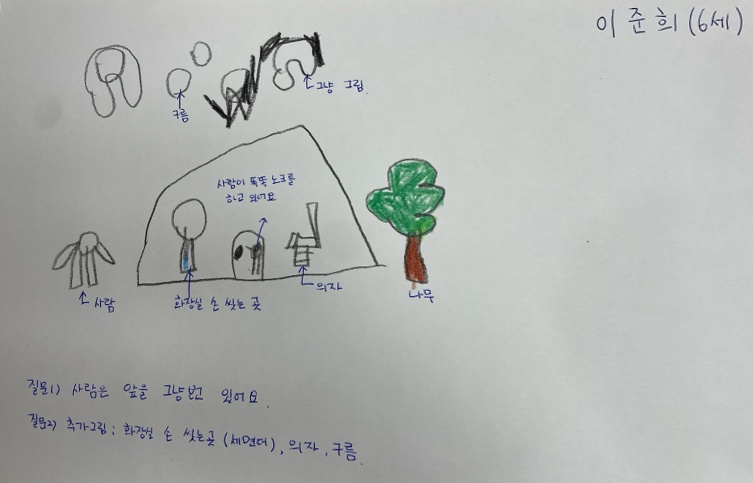 이 준 희 (6세)
그냥 그림.
구름
사람이 똑똑 노크를
하고 있어요
사람
화장실 손 씻는 곳
의자
나무
질문1) 사람은 앞을 그냥 번 있어요.
질문2) 추가그림 : 화장실 손 씻는곳 (세면대), 의자, 구름.